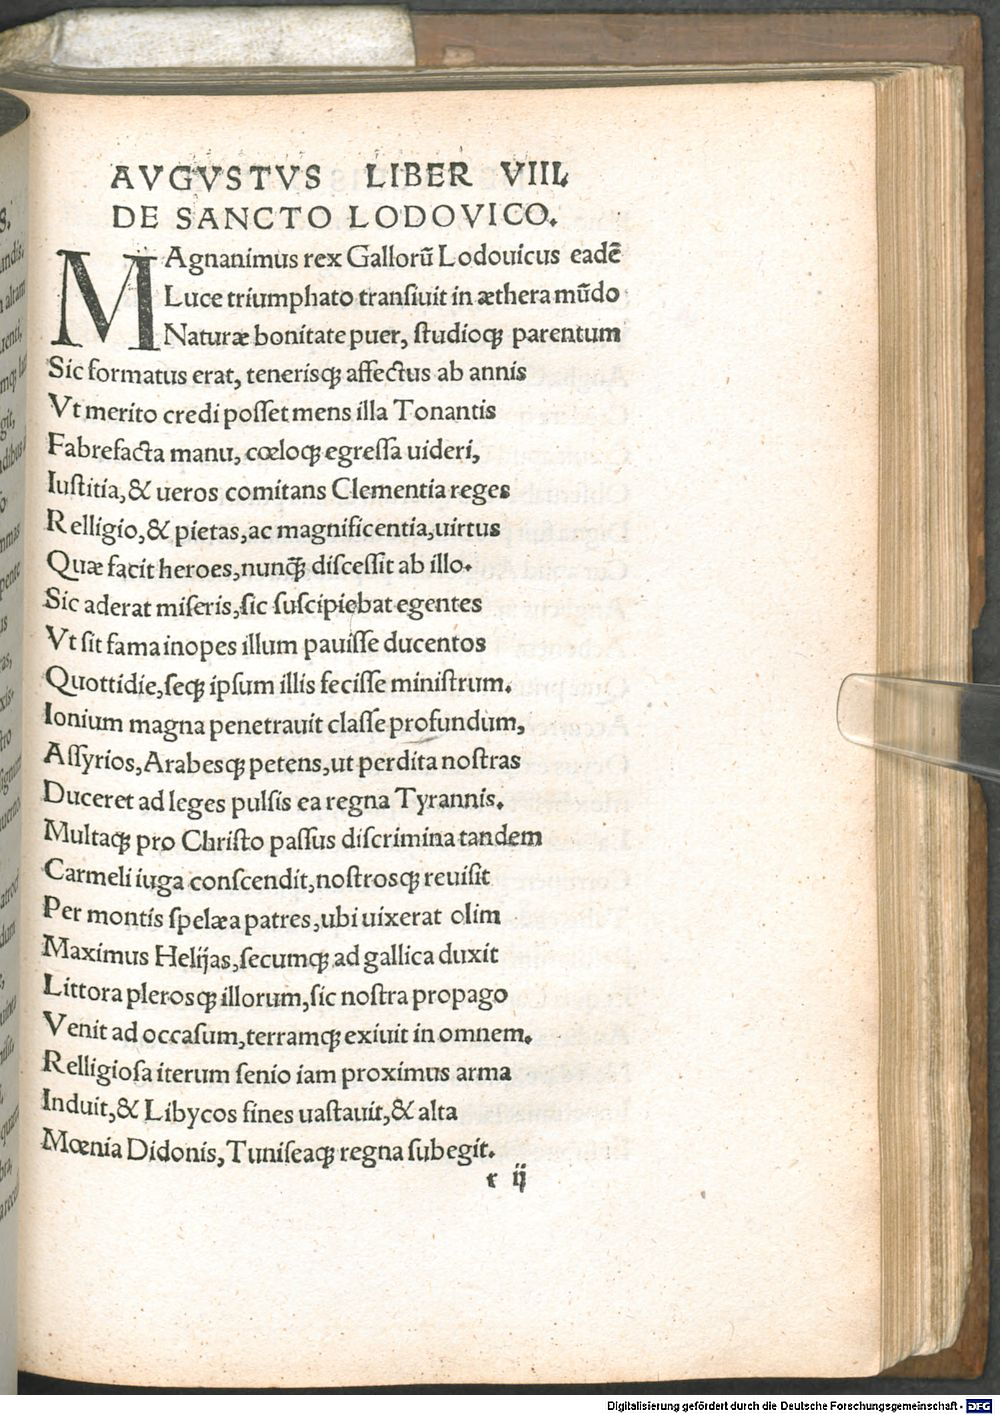 AVGVSTVS LIBER VIII.
DE SANCTO LODOVICO.
MAgnanimus rex Gallorū Lodouicus eadē
Luce triumphato tranſiuit in æthera mūdo
Naturæ bonitate puer, ſtudioq; parentum
Sic formatus erat, tenerisq; affectus ab annis
Vt merito credi poſſet mens illa Tonantis
Fabrefacta manu, cœloq; egreſſa uideri,
Iuſtitia, & ueros comitans Clementia reges
Relligio, & pietas, ac magnificentia, uirtus
Quæ facit heroes, nunq̄ diſceſſit ab illo.
Sic aderat miſeris, ſic ſuſcipiebat egentes
Vt ſit fama inopes illum pauiſſe ducentos
Quottidie, ſeq; ipſum illis feciſſe miniſtrum.
Ionium magna penetrauit claſſe profundum,
Aſſyrios, Arabesq; petens, ut perdita noſtras
Duceret ad leges pulſis ea regna Tyrannis.
Multaq; pro Chriſto paſſus diſcrimina tandem
Carmeli iuga conſcendit, noſtrosq; reuiſit
Per montis ſpelæa patres, ubi uixerat olim
Maximus Helijas, ſecumq; ad gallica duxit
Littora plerosq; illorum, ſic noſtra propago
Venit ad occaſum, terramq; exiuit in omnem.
Relligioſa iterum ſenio iam proximus arma
Induit, & Libycos fines uaſtauit, & alta
Mœnia Didonis, Tuniſeaq; regna ſubegit.
r ij
Digitalisierung gefördert durch die Deutsche Forschungsgemeinschaft - DFG